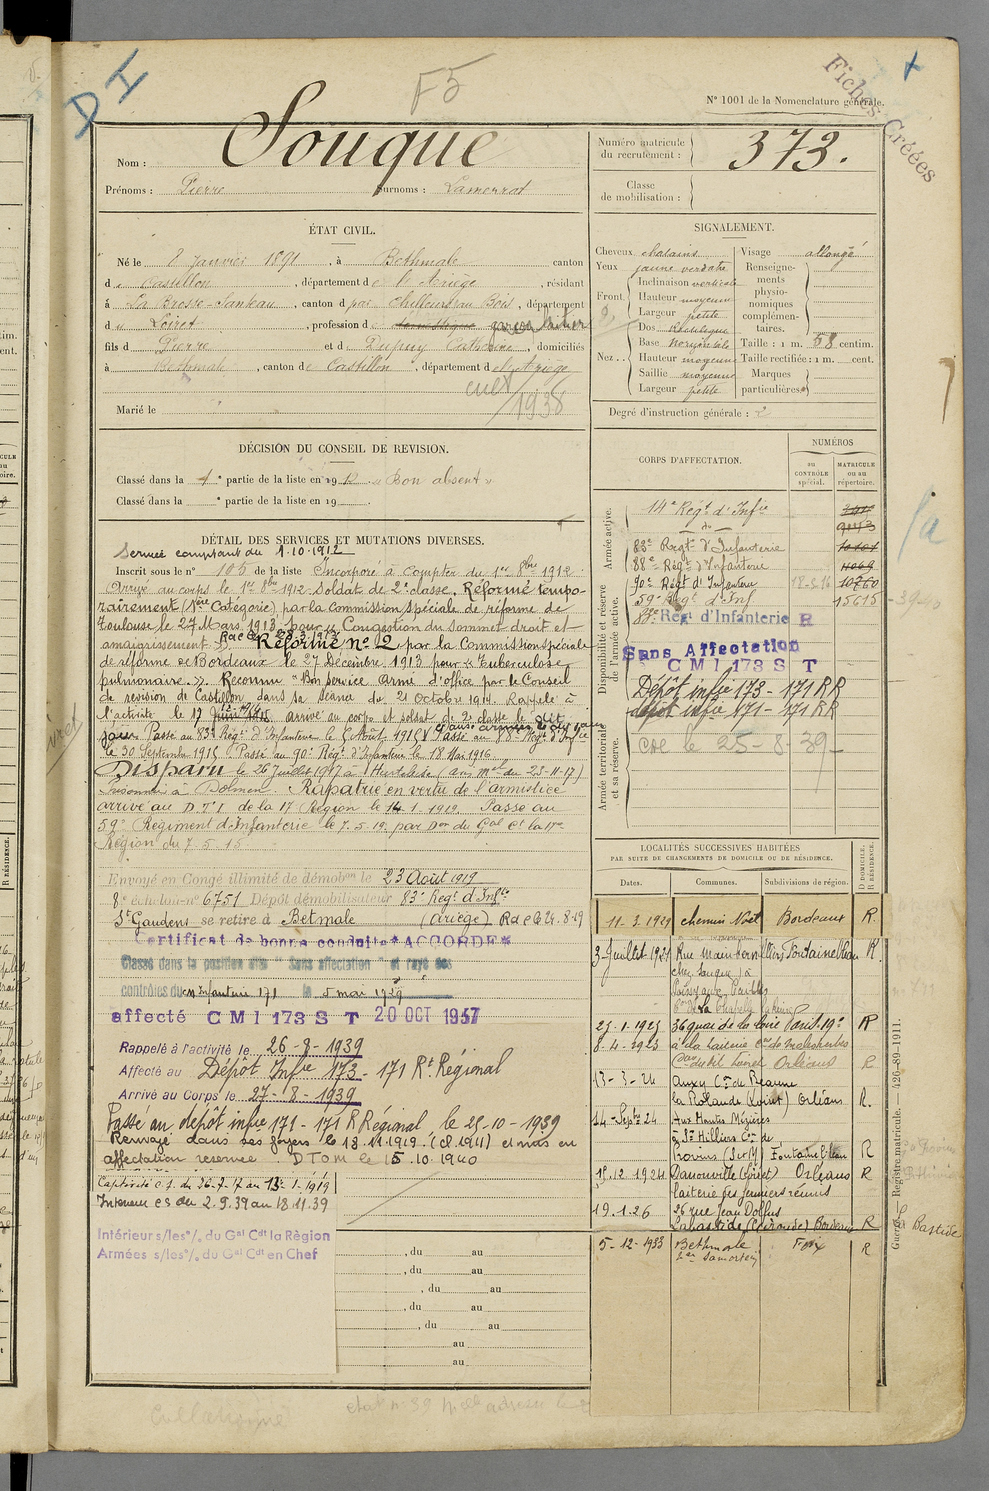 D I
F5
Fiches Créées
N° 1001 de la Nomenclature générale.
Nom : Souque
Prénoms : Pierre Surnoms : Lamerrot
Numéro matricule du recrutement : 373.
Classe de mobilisation :
ÉTAT CIVIL.
Né le 8 Janvier 1891, à Bethmale canton
de Castillon, département de l'Ariège, résidant
à La Brosse-Santeau, canton de par Chilleurs au Bois, département
du Loiret, profession de domestique garçon laitier
fils de Pierre et de Dupuy Catherine, domiciliés
à Bethmale, canton de Castillon, département de l'Ariège
1938
Marié le
SIGNALEMENT.
Cheveux chatains
Yeux jaune verdatre
Front. Inclinaison verticale
Hauteur moyenne
Largeur petite
Nez. Dos rectiligne
Base horizontale
Hauteur moyenne
Saillie moyenne
Largeur petite
Visage allongé
Renseignements physionomiques complémentaires.
Taille : 1 m. 58 centim.
Taille rectifiée : 1 m. cent.
Marques particulières
Degré d'instruction générale : 2
DÉCISION DU CONSEIL DE REVISION.
Classé dans la 1e partie de la liste en 1912 « Bon absent »
Classé dans la e partie de la liste en 19
DÉTAIL DES SERVICES ET MUTATIONS DIVERSES.
Service comptant du 1.10.1912
Inscrit sous le n° 106 de la liste Incorporé à compter du 1er 8bre 1912
Arrivé au corps le 1er 8bre 1912 Soldat de 2e classe. Réformé tempo-
rairement (1ère Catégorie) par la commission spéciale de réforme de
Toulouse le 27 Mars 1913 pour « Congestion du sommet droit et
amaigrissement ». Réformé n° 2, par la Commission spéciale
de réforme de Bordeaux le 27 Décembre 1913 pour « Tuberculose
pulmonaire ». Reconnu "Bon service armé" d'office par le Conseil
de revision de Castillon dans sa séance du 21 Octobre 1914. Rappelé à
l'activité le 17 arrivé au corps et soldat de 2e classe le dit
jour. Passé au 83e Régt d'Infanterie le 5 Août 1915. Passé au 88e Régt d'Infie
le 30 Septembre 1915. Passé au 90e Régt d'Infanterie le 18 Mai 1916
Disparu le 26 Juillet 1917 à Hurtebise (avis mel du 23-11-17)
Prisonnier à Dolmen. Rapatrié en vertu de l'armistice
arrivé au D.T.I. de la 17e Région le 14.1.1919. Passé au
59e Régiment d'Infanterie le 7.5.19 par Don du Gal Ct la 17e
Région du 7.5.15
Envoyé en Congé illimité de démobon le 23 Août 1919
8e échelon n° 6751 Dépôt démobilisateur 83e Régt d'Infie
St Gaudens se retire à Betmale (Ariège) R d C le 24.8.19
Certificat de bonne conduite "ACCORDÉ"
Classé dans la position dite "Sans affectation" et rayé des
contrôles du cm infanterie 171 le 5 mai 1929
affecté CMI 173 S T 20 OCT 1937
Rappelé à l'activité le 26-8-1939
Affecté au Dépôt Infie 173-171 Rt Régional
Arrivé au Corps le 27-8-1939
Passé au dépôt infie 171-171 R Régional le 25-10-1939
Renvoyé dans ses foyers le 18.11.1919. (Cl. 1911) et mis en
affectation reservée. DTOM le 15.10.1940
Captivité c.s. du 26.7.17 au 13.1.1919
Intérieur c s du 2.9.39 au 18.11.39
Intérieurs s/les% du Gal Cdt la Région
Armées s/les% du Gal Cdt en Chef
, du au
, du au
, du au
, du au
, du au
au
au
CORPS D'AFFECTATION.
NUMÉROS
au CONTRÔLE spécial.
MATRICULE ou au répertoire.
Armée active.
Disponibilité et réserve de l'armée active.
Armée territoriale et sa réserve.
14e Régt d'Infie
83e Régt d'Infanterie
88e Régt d'Infanterie 11069
90e Régt d'Infanterie 10760
59e Régt d'Inf 15615
Régt d'Infanterie R
Sans Affectation
CMI 173 S T
Dépôt infie 173-171 RR
dépôt infie 171-171 RR
CDE le 25-8-39
LOCALITÉS SUCCESSIVES HABITÉES
PAR SUITE DE CHANGEMENTS DE DOMICILE OU DE RÉSIDENCE.
Dates. Communes. Subdivisions de région. D DOMICILE. R RÉSIDENCE.
11.3.1929 chemin Noet Bordeaux R.
3 Juillet 1921 Fontainebleau R.
23-1-1923 36 quai de la Loire Paris 19e R
8-4-1923 à la Laiterie Con de Malesherbes
Orléans R
13-3-24 Auxy Con de Beaune
la Rolande (Loiret) Orléans R.
14-Septbre 24 aux Hautes Mézières
St Hilliers Con de
Provins (S et M) Fontainebleau R
18.12.1924 Danonville (Loiret) Orléans R
laiterie des fermiers réunis
19.1.26 26 rue Jean Dolfus
Labastide (Gironde) Bordeaux R
5-12-1933 Bethmale Foix R
Registre matricule. — 426-89-1911.
La Bastide